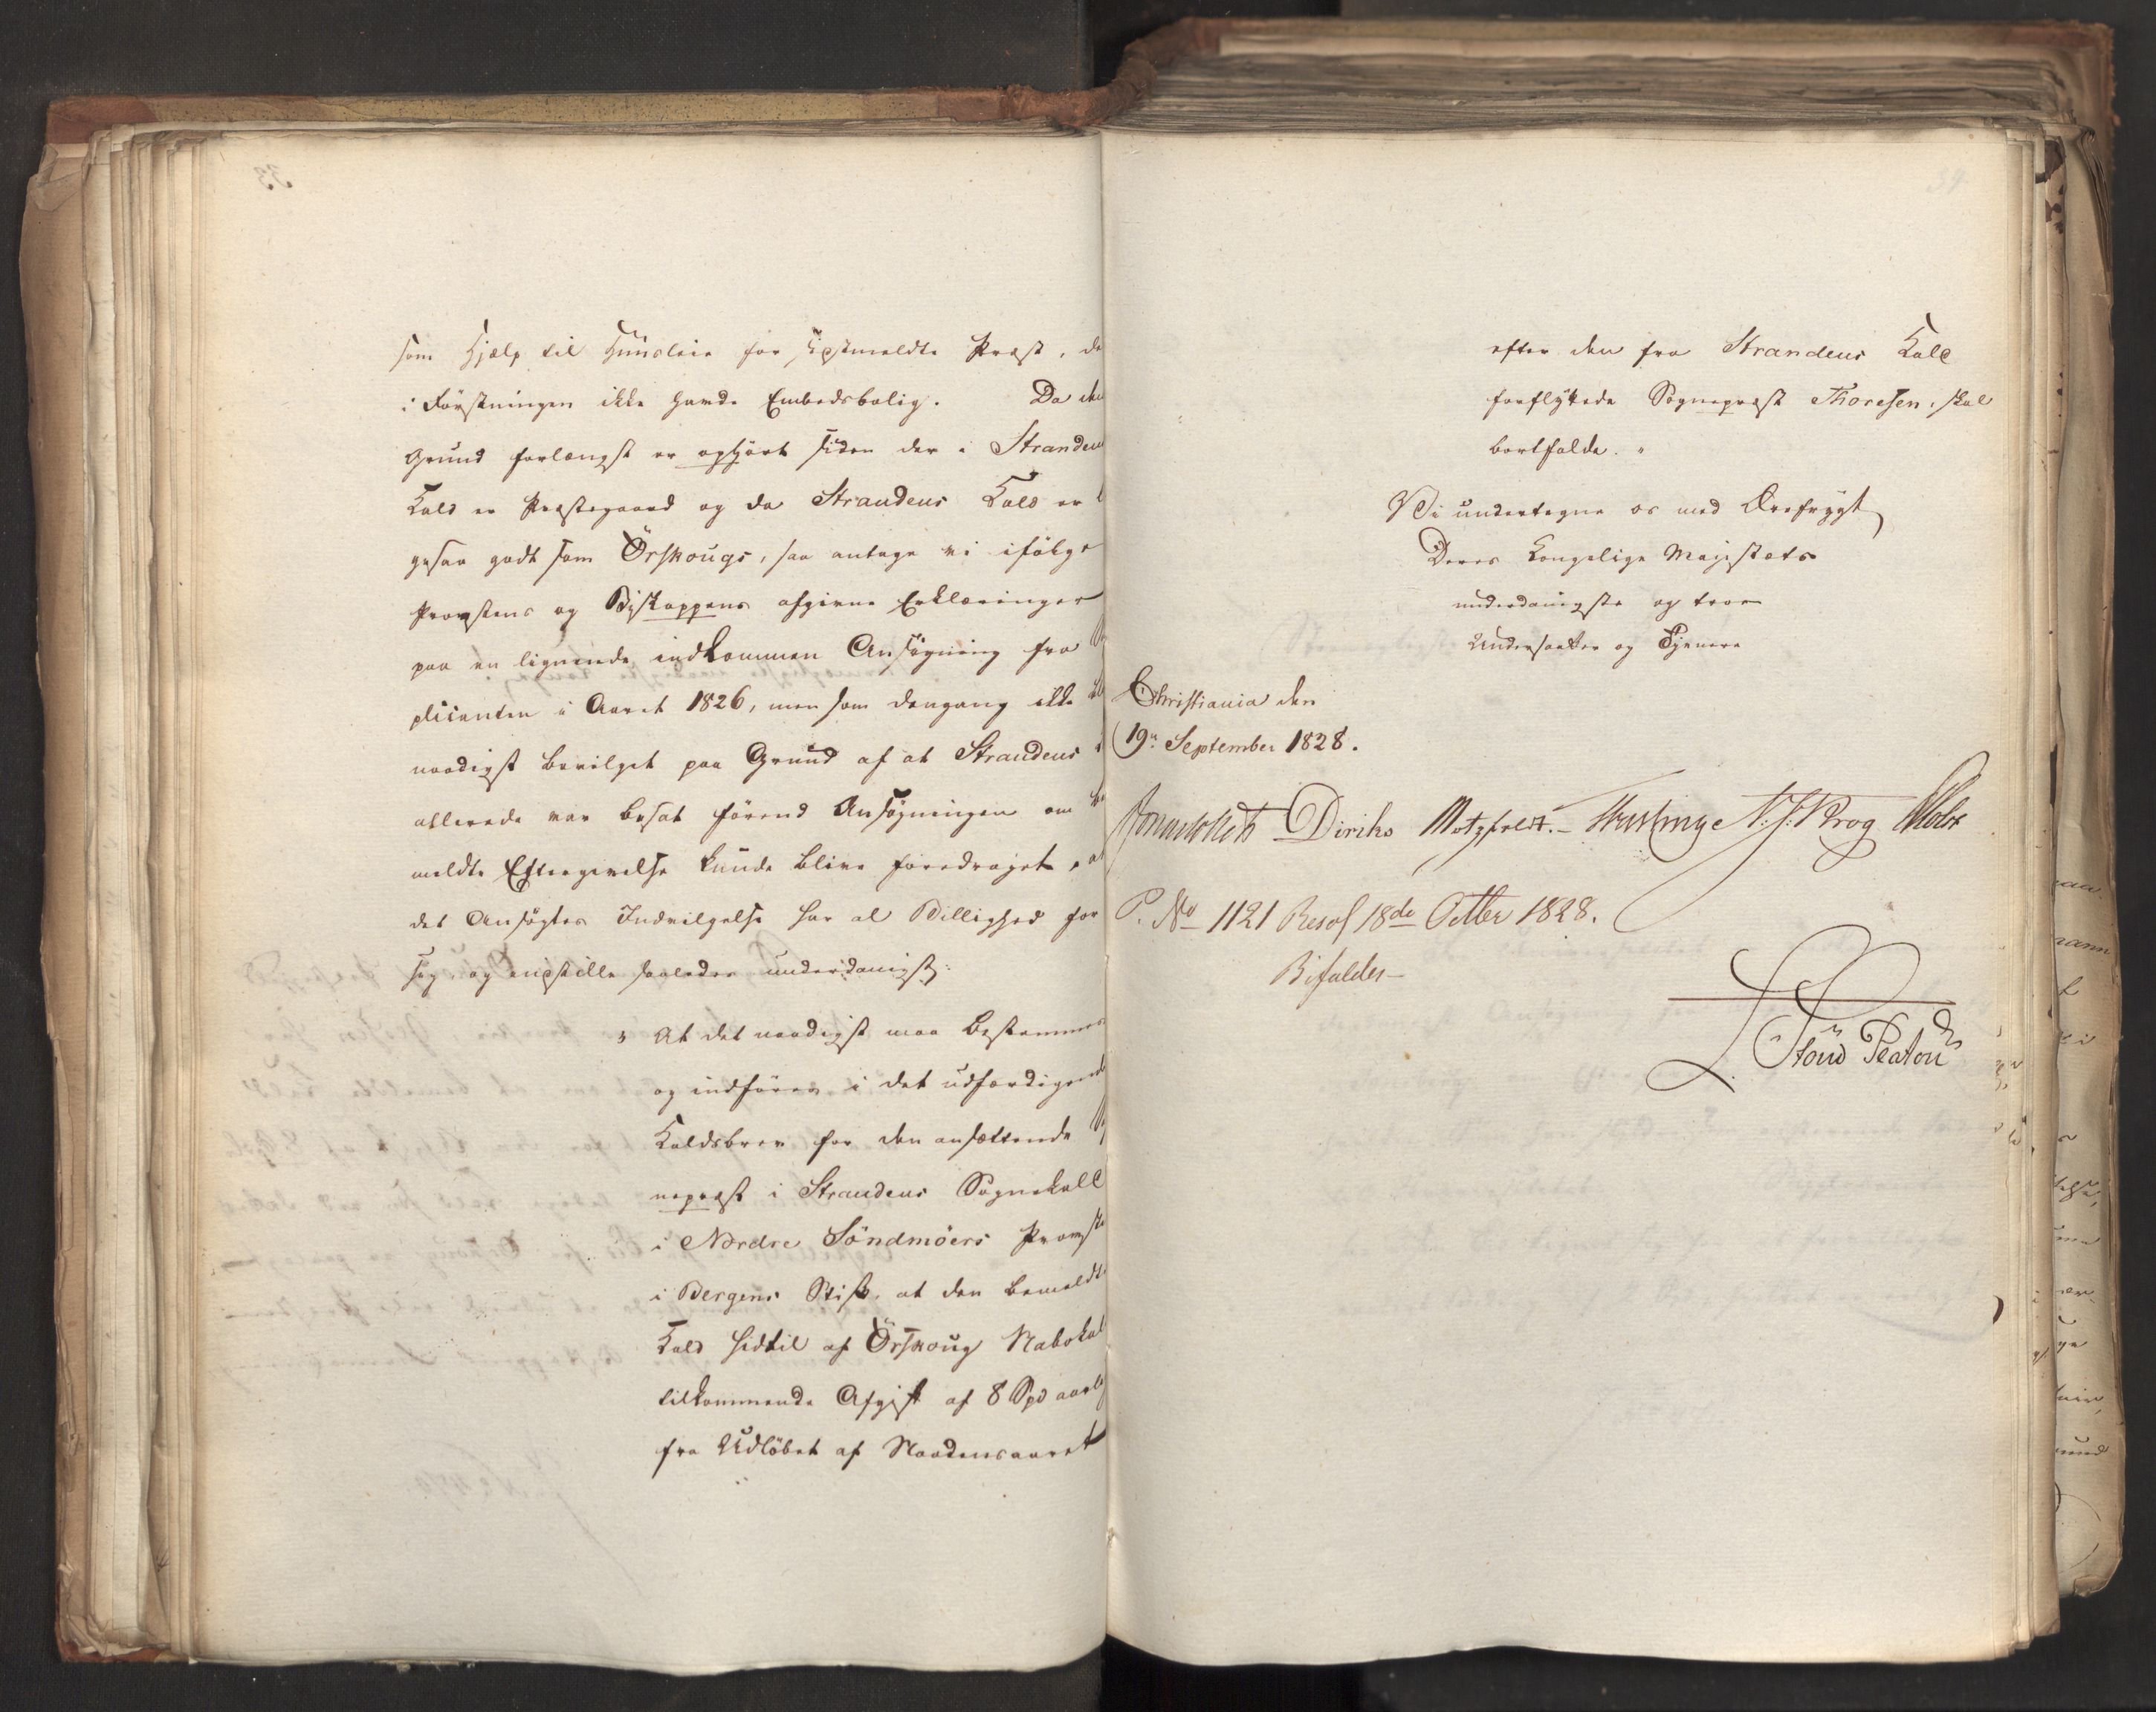 som Hjælp til Huusleie for sidstmeldte Præst, da
i Førstningen ikke havde Embedsbolig. Da den
Grund forlængst er ophört siden der i Strandens
Kald er Præstegaard og da Strandens Kald er
gesaa godt som Örskougs, saa antage vi ifölge
Provstens og Biskoppens afgivne Erklæringer
paa en lignende indkommen Ansøgning fra
plicanten i Aaret 1826, men som dengang ikke
naadigst bevilget paa Grund af at Strandens
allerede var besat förend Ansøgningen om
meldte Eftergivelse kunde blive foredraget, at
det Ansøgtes Indvilgelse har al Billighed for
sig og indstille saaledes underdanigst:
" At det naadigst maa bestemmes
og indføres i det udfærdigende
Kaldsbrev for den ansættende
nepræst i Strandens Sognekald
i Nordre Söndmöers Provstie
i Bergens Stift, at den bemeldte
Kald hidtil af Örskoug Nabokald
tilkommende Afgift af 8 Spd aarlig
fra Udløbet af Naadensaaret
efter den fra Strandens Kald
forflyttede Sognepræst Thoresen, skal
bortfalde. "
Vi undertegne os med Ærefrygt
Deres Kongelige Majestæts
underdanigste og troe
Undersaatter og Tjenere
Christiania den
19de September 1828.
Diriks Motzfeldt. N. J. Krog
P. No 1121 Resol 18de Octbr 1828.
Bifaldes